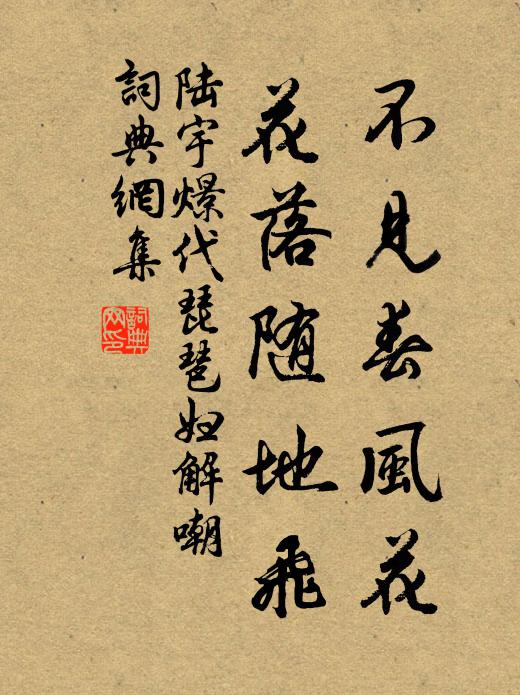 不見春風花
花落随地飛
陆宇燝代琵琶妇解嘲
詞典網集
詞典
网印